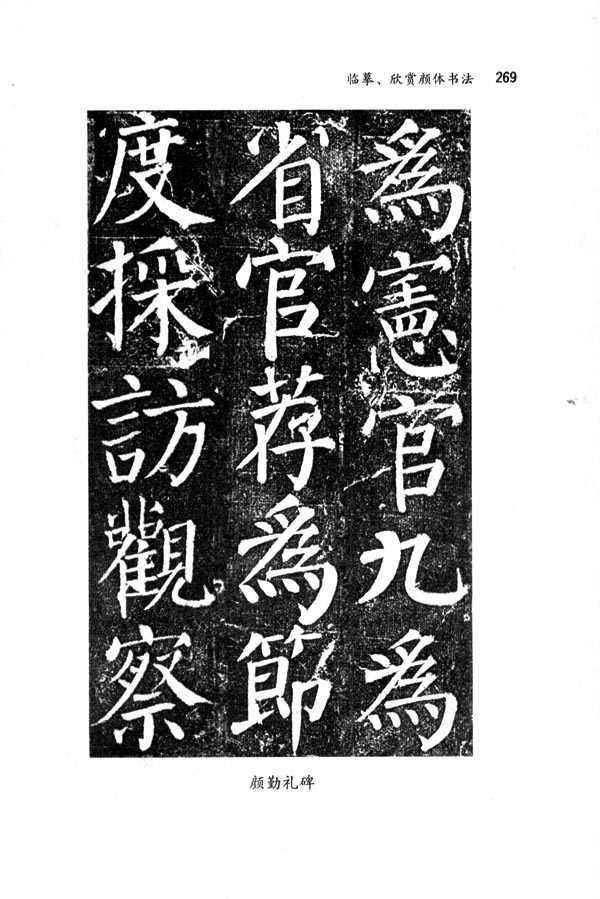 临摹、欣赏颜体书法 269
為憲官九為
省官荐為節
度採訪觀察
颜勤礼碑